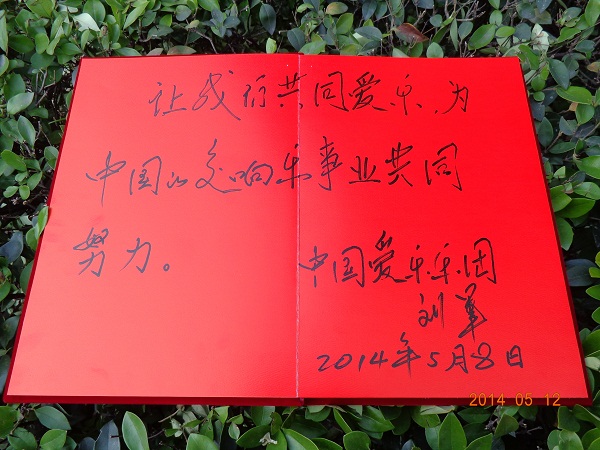 让我们共同爱乐,为
中国的交响乐事业共同
努力。
中国爱乐乐团
刘军
2014年5月8日
2014 05 12